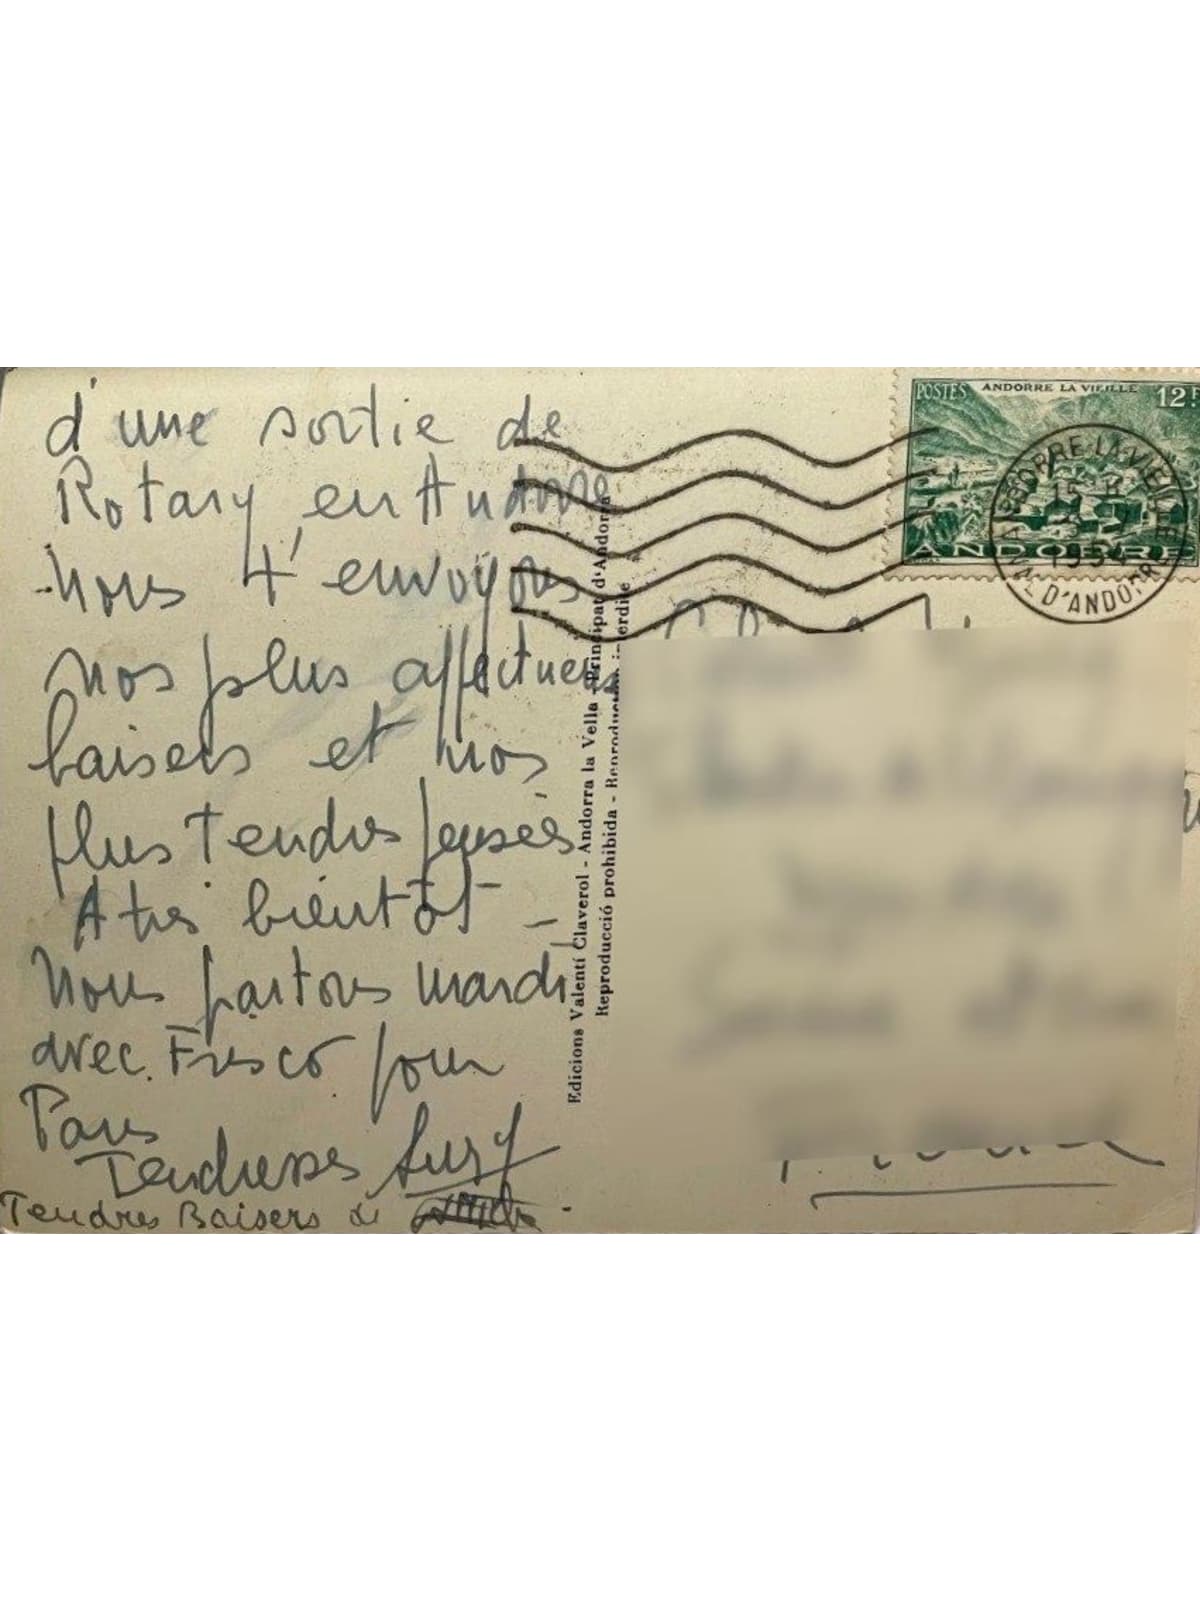 d'une sortie de
Rotary en Andorre
Nous t'envoyons
nos plus affectueux
baisers et nos
plus tendres pensées
A très bientôt -
Nous partons mardi
avec Fresco pour
Paris
Tendresses Suzy
Tendres Baisers de
Edicions Valentí Claverol - Andorra la Vella - Principat d'Andorra
Reproducció prohibida - Reproduction interdite
POSTES ANDORRE LA VIEILLE 12F
ANDORRE
ANDORRE-LA-VIEILLE
15 H
1954
VAL D'ANDORRE